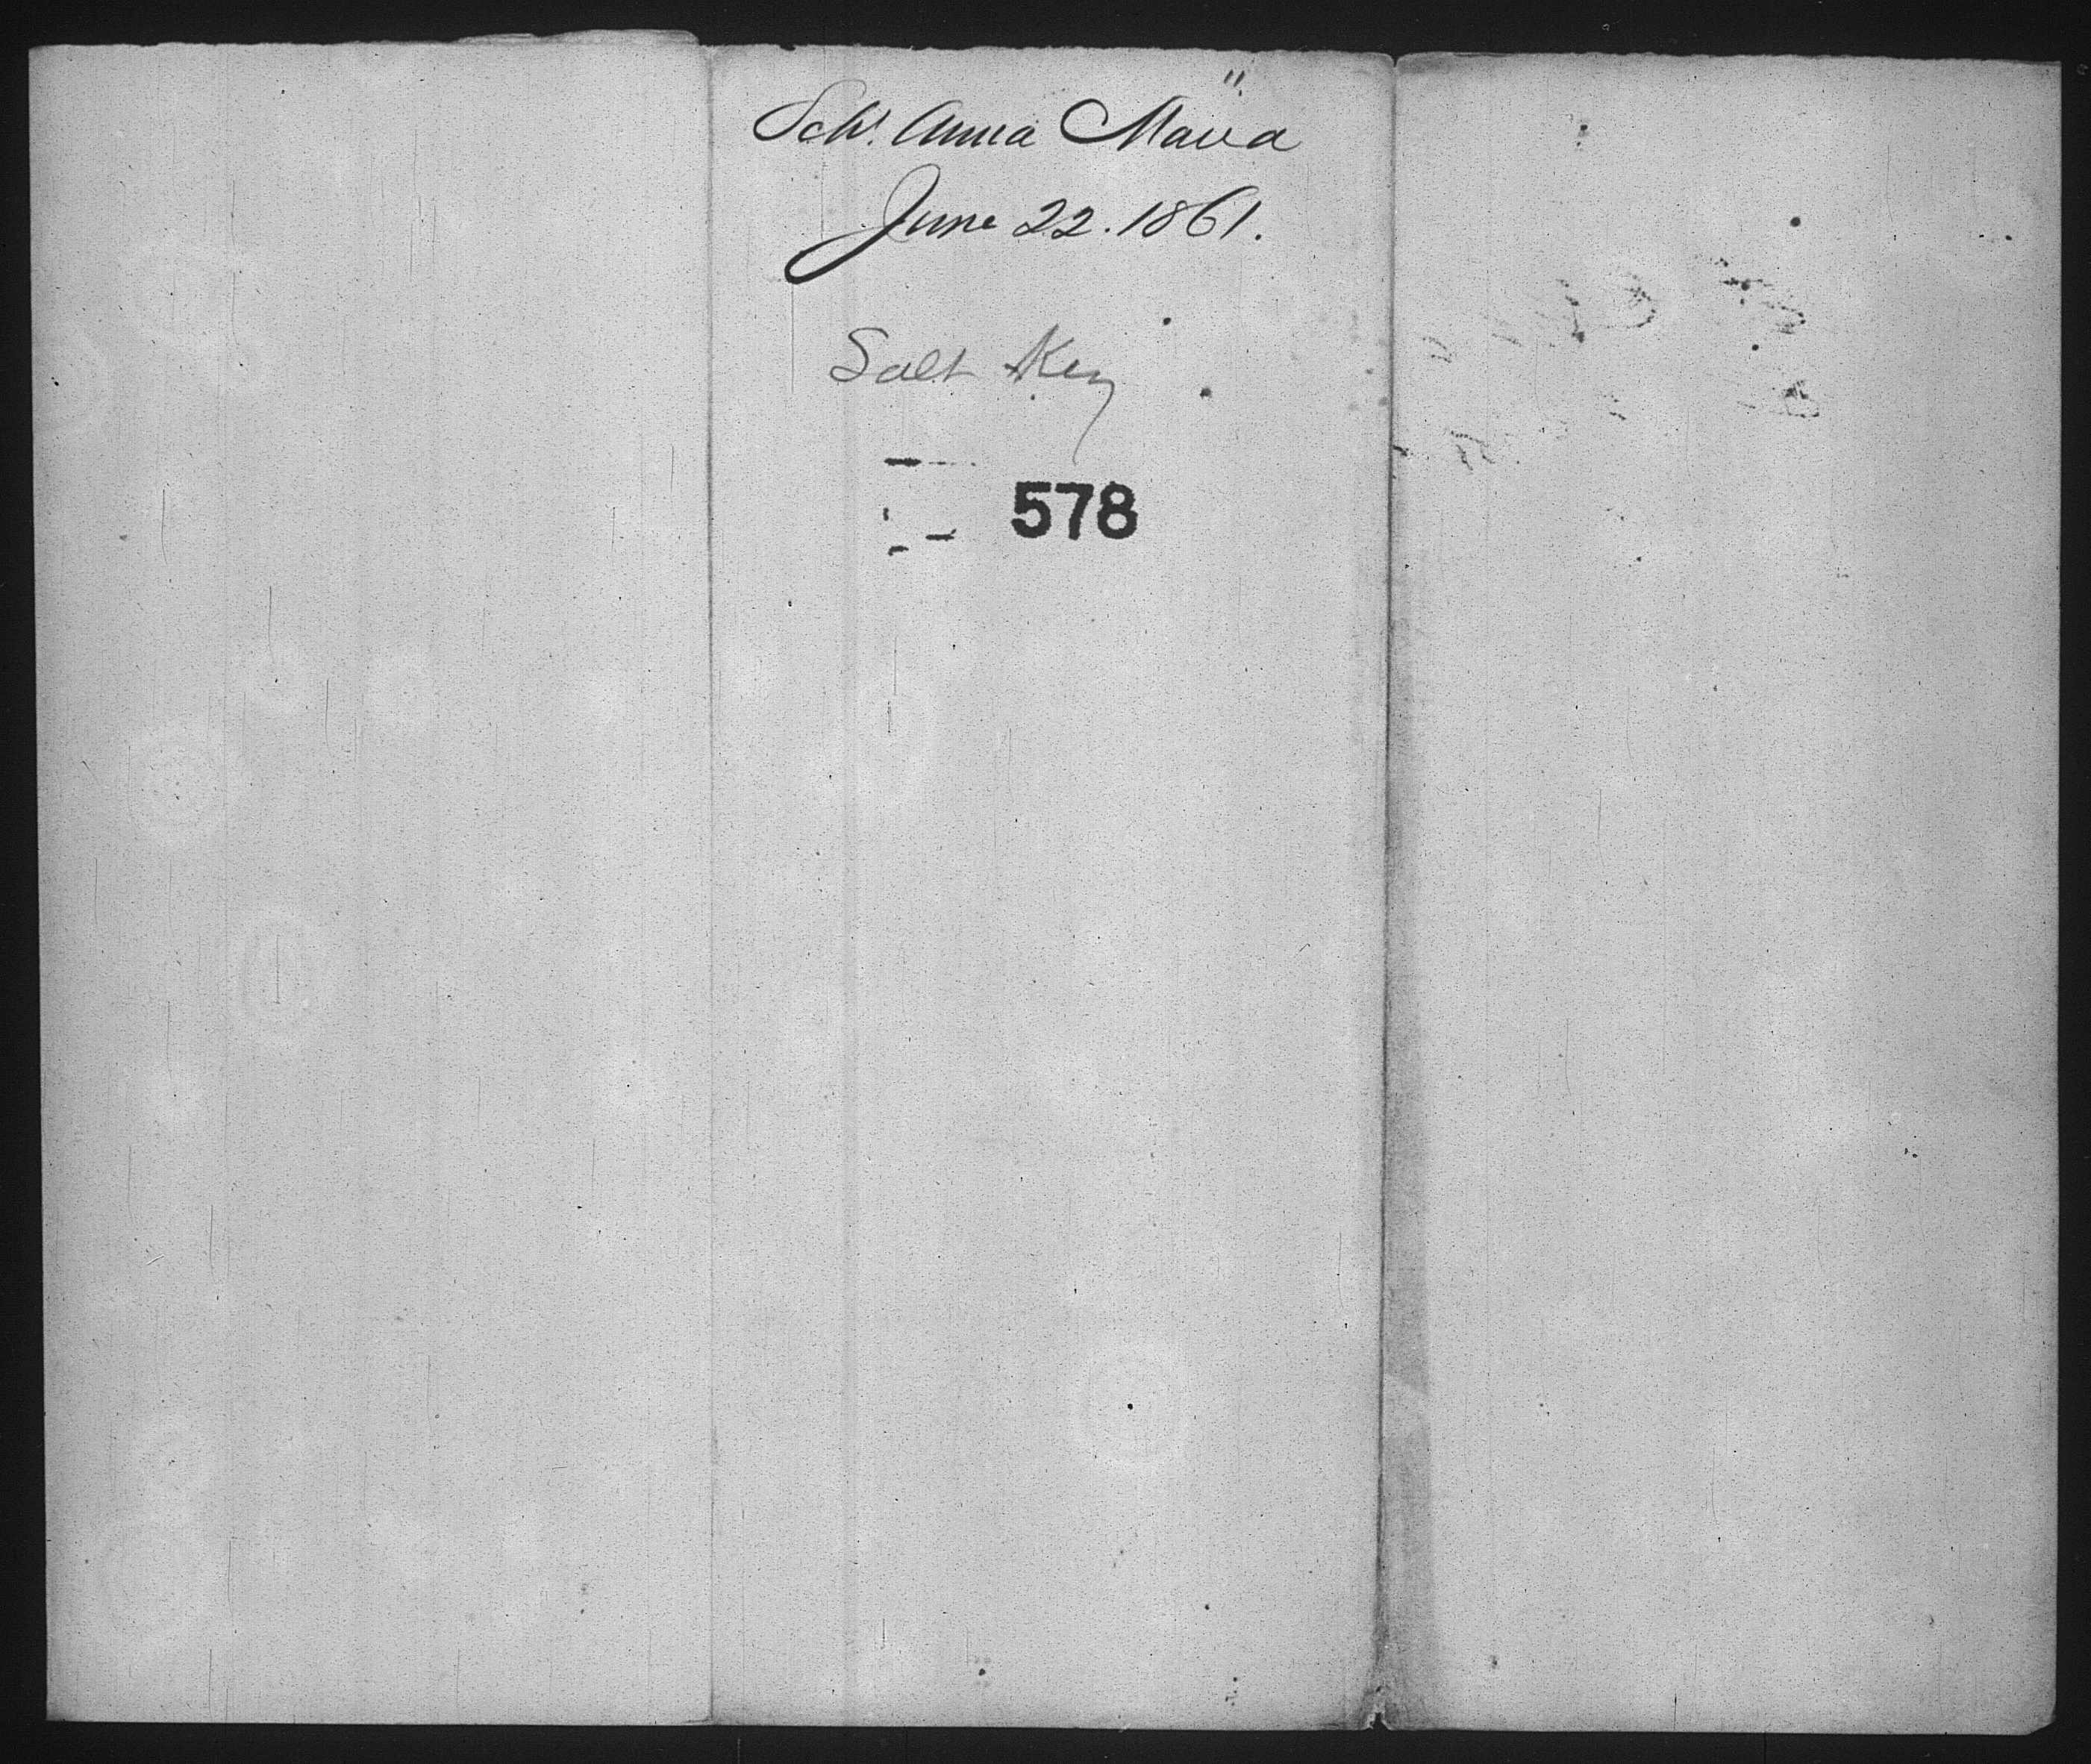 Schr. Anna Maria"
June 22. 1861.
Salt Key
578